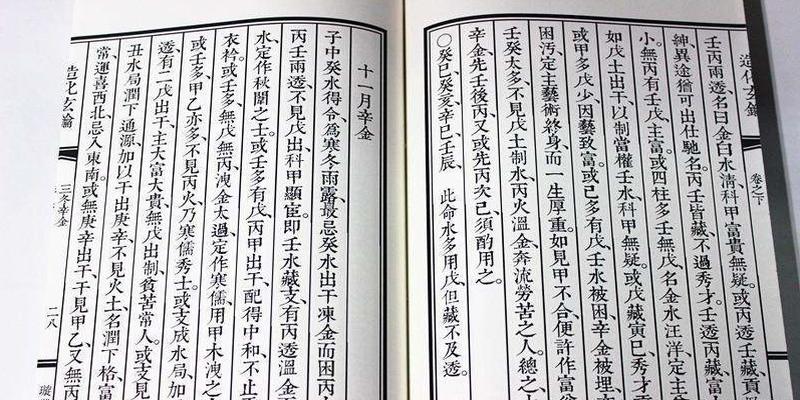 造化玄鑰
卷之下
壬丙兩透、名曰金白水淸、科甲富貴無疑。或丙透壬藏、貢
紳、異途猶可出仕馳名。丙壬皆藏、不過秀才。壬透丙藏、富
小。無丙有壬戊、主富。或四柱多壬無戊、名金水汪洋、定主
如戊土出干、以制當權壬水、科甲無疑。或戊藏寅巳、秀才
或甲多戊少、因藝致富。或己多有戊、壬水被困、辛金被埋、
困污、定主藝術終身、而一生厚重。如見甲不合、便許作富
壬癸太多、不見戊土制水、丙火溫金、奔流勞苦之人。總之、
辛金先壬後丙、又或先丙次己、須酌用之。
○癸巳、癸亥、辛巳、壬辰、 此命水多用戊、但藏不及透。
十一月辛金
子中癸水得令、爲寒冬雨露、最忌癸水出干凍金、而困丙
丙壬兩透、不見戊出、科甲顯宦。即壬水藏支、有丙透溫金
水、定作秋闈之士。或壬多有戊、丙甲出干、配得中和、不止
衣衿。或壬多、無戊無丙、洩金太過、定作寒儒、用甲木洩之
或壬多、甲乙亦多、不見丙火、乃寒儒秀士。或支成水局、加
透、有二戊出干、主大富大貴。無戊出制、貧苦常人。或支見
丑水局、潤下通源、加以干出庚辛、不見火土、名潤下格、富
常、運喜西北、忌入東南。或無庚辛出干、干見甲乙、又無丙
造化玄鑰
三冬辛金
二八